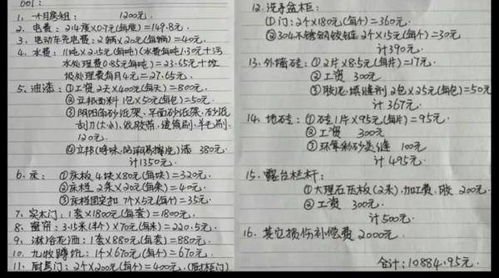 001:
1. 一个月房租: 1200元.
2. 电费: 214度×0.7元(每度)=149.8元.
3. 电动车充电费: 2辆×20元(每辆)=40元.
4. 水费: 11吨×2.15元(每吨)(水费每吨1.30元+污
水处理费0.85元每吨)=23.65元+垃
圾处理费每月4元=27.65元.
5. 油漆: ①工资 2天×400元(每天)=800元.
②立邦面料 1包×50元(每包)=50元
③阴阳角砂纸架.平面砂纸架.砂纸
刮刀(大小).纸胶带.建筑刷.羊毛刷
120元.
④立邦漆 380元.
计1350元.
6. 床: ①床板 4块×80元(每块)=320元.
②床档 2条×20元(每条)=40元.
③床档固定扣 7个×5元(每个)=35元.
7. 实木门: 1套×1800元(每套)=1800元.
8. 窗帘: 3.15米×70元(每米)=220.5元.
9. 淋浴花洒: 1套×880元(每套)=880元.
10. 1个×670元(每个)=670元.
11. 2个×200元(每个)=400元.
12. 洗手盆柜:
①门: 2个×180元(每个)=360元.
②304不锈钢铰链 2个×15元(每个)=30元
计390元.
13. 外墙砖: ①2片×8.5元(每片)=17元.
② 工资 300元
③胶泥.填缝剂 2包×25元(每包)=50元
计 367元.
14. 地砖: ①砖1片×95元(每片)=95元.
② 工资 300元
③环氧彩砂美缝 100元
计495元.
15. 露台栏杆:
①大理石压板(2米).加工费.胶 200元.
② 工资 300元.
计500元.
16. 其它损伤补偿费 2000元.
合计: 10884.95元.